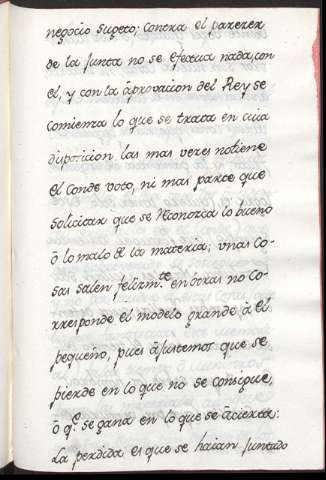 negocio sugeto; contra el parezer
de la Junta no se efectua nada, con
el, y con la âprovaçion del Rey se
comienza lo que se trata en cuia
disposicion las mas vezes no tiene
el Conde voto, ni mas parte que
solicitar que se reconozca lo bueno
ô lo malo de la materia; vnas co-
sas salen felizm.te en otras no co-
rresponde el modelo grande â el
pequeño, pues âjustemos que se
pierde en lo que no se consigue,
ô q.e se gana en lo que se âcierta:
La perdida es que se haian juntado